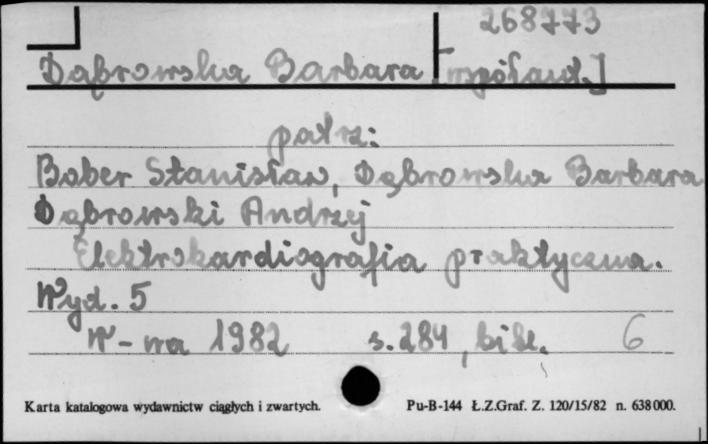 268773
Dąbrowska Barbara [współaut.]
patrz:
Bober Stanisław, Dąbrowska Barbara
Dąbrowski Andrzej
Elektrokardiografia praktyczna.
Wyd. 5
W-wa 1982 s. 284, bibl. 6
Karta katalogowa wydawnictw ciągłych i zwartych. Pu-B-144 Ł.Z.Graf. Z. 120/15/82 n. 638000.